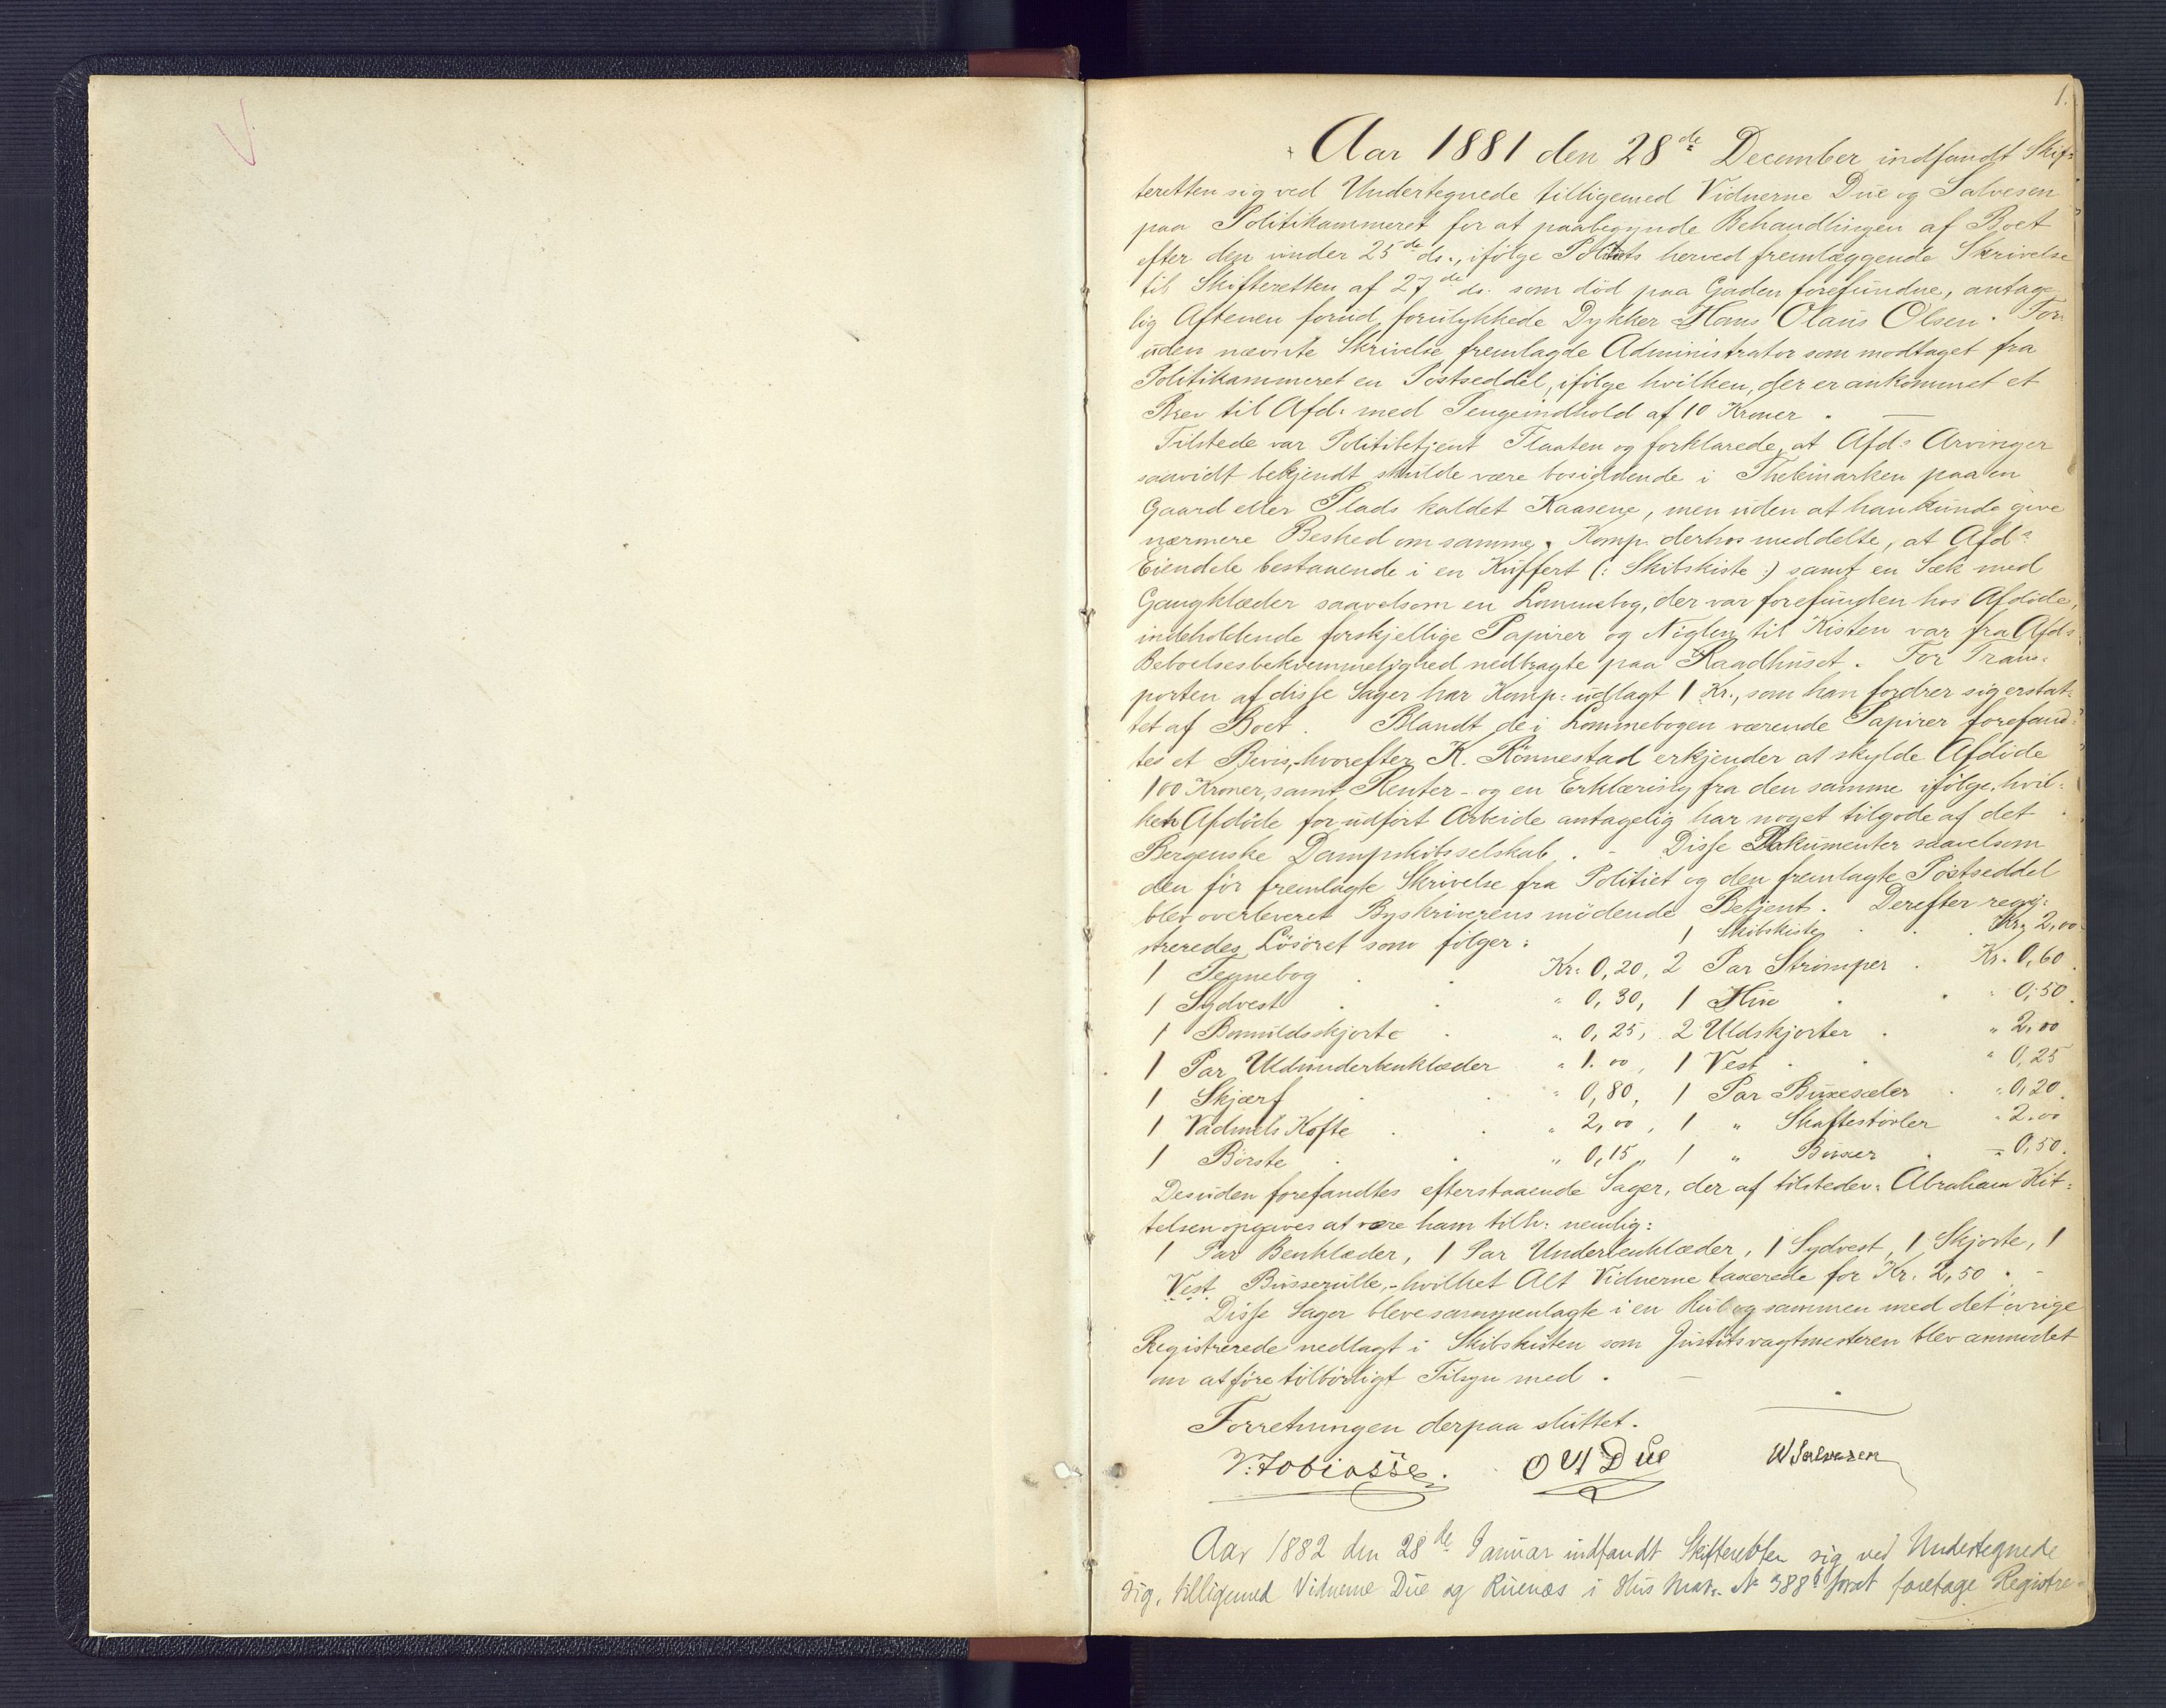 1.
Aar 1881 den 28de December indfandt Skif-
teretten sig ved Undertegnede tilligemed Vidnerne Due og Salvesen
paa Politikammeret for at paabegynde Behandlingen af Boet
efter den under 25de ds., ifølge Politiets herved fremlæggende Skrivelse
til Skifteretten af 27de ds. som död paa Gaden forefundne, antage
lig Aftenen forud forulykkede Dykker Hans Olaus Olsen. For-
uden nævnte Skrivelse fremlagde Administrator som modtaget fra
Politikammeret en Postseddel, ifölge hvilken, der er ankommet et
Brev til Afd. med Pengeindhold af 10 Kroner. —
Tilstede var Politibetjent Flaaten og forklarede, at Afd:s Arvinger
saavidt bekjendt skulde være bosiddende i Thelemarken paa en
Gaard eller Plads kaldet Kaasene, men uden at han kunde give
nærmere Besked om samme. Komp. derhos meddelte, at Afd:s
Eiendele bestaaende i en Kuffert (: Skibskiste :) samt en Sæk med
Gangklæder saavelsom en Lommebog, der var forefunden hos Afdöde,
indeholdende forskjellige Papirer og Nöglen til Kisten var fra Afd:s
Beboelsesbekvemmelighed nedbragte paa Raadhuset. For Trans-
porten af disse Sager har Komp: udlagt 1 Kr., som han fordrer sig erstat-
tet af Boet. Blandt de i Lommebogen værende Papirer forefand-
tes et Bevis, hvorefter K. Rönnestad erkjender at skylde Afdöde
100 Kroner, samt Renter - og en Erklæring fra den samme ifölge hvil-
ken Afdöde for udfört Arbeide antagelig har noget tilgode af det
Bergenske Dampskibsselskab. - Disse Dokumenter saavelsom
den för fremlagte Skrivelse fra Politiet og den fremlagte Postseddel
blev overleveret Byskriverens mödende Betjent. Derefter regi-
streredes Lösöret som fölger: 1 Skibskiste . . . Kr. 2,00
1 Tegnebog . Kr: 0,20, 2 Par Strömper . Kr. 0,60.
1 Sydvest . . " 0,30, 1 Hue . . " 0,50.
1 Bomuldsskjorte . " 0,25, 2 Uldskjorter . " 2,00
1 Par Uldunderbenklæder " 1.00, 1 Vest . . " 0,25
1 Skjærf . . " 0,80, 1 Par Buxeseler . " 0,20.
1 Vadmels Kofte . . " 2,00, 1 " Skaftestövler " 2.00
1 Börste . . " 0,15, 1 " Buxer . " 0,50.
Desuden forefandtes efterstaaende Sager, der af tilstedev: Abraham Kit-
telsen opgaves at være ham tilh: nemlig:
1 Par Benklæder, 1 Par Underbenklæder, 1 Sydvest, 1 Skjorte, 1
Vest, Busserulle, - hvilket Alt Vidnerne taxerede for Kr. 2,50. -
Disse Sager bleve sammenlagte i en Rul og sammen med det övrige
Registrerede nedlagt i Skibskisten som Justitsvagtmesteren blev anmodet
om at före tilbörligt Tilsyn med. —
Forretningen derpaa sluttet.
V. Tobiassen. O M Due W Salvesen
Aar 1882 den 28de Januar indfandt Skifteretten sig ved Undertegnede
sig, tilligemed Vidnerne Due og Ruenæs i Hus Matr. No 388b for at foretage Registre-